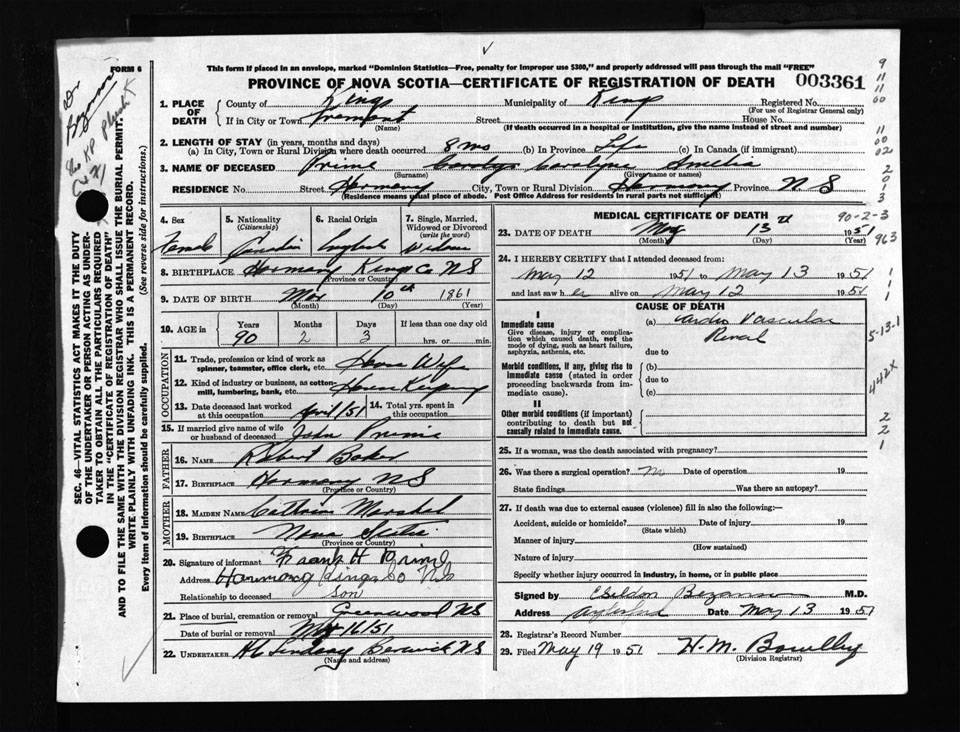 FORM 6
This form if placed in an envelope, marked "Dominion Statistics—Free, penalty for improper use $300," and properly addressed will pass through the mail "FREE"
PROVINCE OF NOVA SCOTIA—CERTIFICATE OF REGISTRATION OF DEATH 003361
1. PLACE OF DEATH County of Kings Municipality of Kings Registered No.
(For use of Registrar General only)
If in City or Town Tremont Street House No.
(Name) (If death occurred in a hospital or institution, give the name instead of street and number)
2. LENGTH OF STAY (in years, months and days)
(a) In City, Town or Rural Division where death occurred 8 ms (b) In Province Life (c) In Canada (if immigrant)
3. NAME OF DECEASED Prime Caroline Amelia
(Surname) (Given name or names)
RESIDENCE No. Street Harmony City, Town or Rural Division Harmony Province N S
(Residence means usual place of abode. Post Office Address for residents in rural parts not sufficient)
4. Sex Female
5. Nationality (Citizenship) Canadian
6. Racial Origin English
7. Single, Married, Widowed or Divorced (write the word) Widow
8. BIRTHPLACE Harmony Kings Co NS
(Province or Country)
9. DATE OF BIRTH Mar 10th 1861
(Month) (Day) (Year)
10. AGE in Years Months Days If less than one day old
90 2 3 hrs. or min.
OCCUPATION
11. Trade, profession or kind of work as spinner, teamster, office clerk, etc. House Wife
12. Kind of industry or business, as cotton-mill, lumbering, bank, etc. House Keeping
13. Date deceased last worked at this occupation April/51 14. Total yrs. spent in this occupation
15. If married give name of wife or husband of deceased John Prime
FATHER
16. NAME Robert Baker
17. BIRTHPLACE Harmony NS
(Province or Country)
MOTHER
18. MAIDEN NAME Marshal
19. BIRTHPLACE Nova Scotia
(Province or Country)
20. Signature of informant Frank H Prime
Address Harmony Kings Co NS
Relationship to deceased son
21. Place of burial, cremation or removal Greenwood NS
Date of burial or removal May 16/51
22. UNDERTAKER Lindsay Berwick NS
(Name and address)
MEDICAL CERTIFICATE OF DEATH
23. DATE OF DEATH May 13th 1951
(Month) (Day) (Year)
24. I HEREBY CERTIFY that I attended deceased from:
May 12 1951 to May 13 1951
and last saw her alive on May 12 1951
CAUSE OF DEATH
I
Immediate cause
Give disease, injury or complication which caused death, not the mode of dying, such as heart failure, asphyxia, asthenia, etc.
(a) Cardio Vascular
Renal
due to
Morbid conditions, if any, giving rise to immediate cause (stated in order proceeding backwards from immediate cause).
(b)
due to
(c)
II
Other morbid conditions (if important) contributing to death but not causally related to immediate cause.
25. If a woman, was the death associated with pregnancy?
26. Was there a surgical operation? No Date of operation 19
State findings Was there an autopsy?
27. If death was due to external causes (violence) fill in also the following:—
Accident, suicide or homicide? Date of injury 19
(State which)
Manner of injury
(How sustained)
Nature of injury
Specify whether injury occurred in industry, in home, or in public place
Signed by Bezanson M.D.
Address Aylesford Date May 13 1951
28. Registrar's Record Number
29. Filed May 19 1951 H. M. Bowlby
(Division Registrar)
SEC. 46—VITAL STATISTICS ACT MAKES IT THE DUTY OF THE UNDERTAKER OR PERSON ACTING AS UNDERTAKER TO OBTAIN ALL THE PARTICULARS REQUIRED IN THE "CERTIFICATE OF REGISTRATION OF DEATH" AND TO FILE THE SAME WITH THE DIVISION REGISTRAR WHO SHALL ISSUE THE BURIAL PERMIT. WRITE PLAINLY WITH UNFADING INK. THIS IS A PERMANENT RECORD.
Every item of Information should be carefully supplied. (See reverse side for instructions.)
Dr Bezanson
90-2-3
963
5-13-1
442X
2
2
1